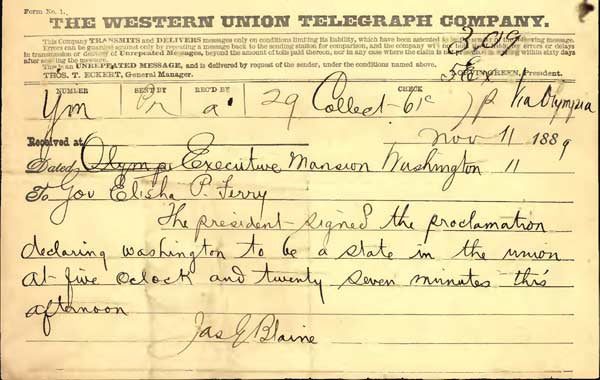 Form No. 1.
THE WESTERN UNION TELEGRAPH COMPANY.
This Company TRANSMITS and DELIVERS messages only on conditions limiting its liability, which have been assented to by the following message.
Errors can be guarded against only by repeating a message back to the sending station for comparison, and the company will not errors or delays
in transmission or delivery of Unrepeated Messages, beyond the amount of tolls paid thereon, nor in any case where the claim is not within sixty days
after sending the message.
This is an UNREPEATED MESSAGE, and is delivered by request of the sender, under the conditions named above.
THOS. T. ECKERT, General Manager. NORVIN GREEN, President.
309
NUMBER SENT BY REC'D BY CHECK
Ym a 29 Collect 61c Via Olympia
Received at Nov 11 1889
Dated Olymp Executive Mansion Washington 11
To Gov Elisha P. Ferry
The president signed the proclamation
declaring washington to be a state in the union
at five oclock and twenty seven minutes this
afternoon
Jas G Blaine